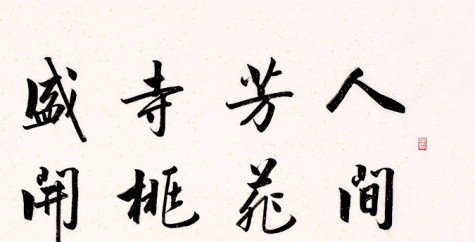 人間
芳菲
寺桃
盛開